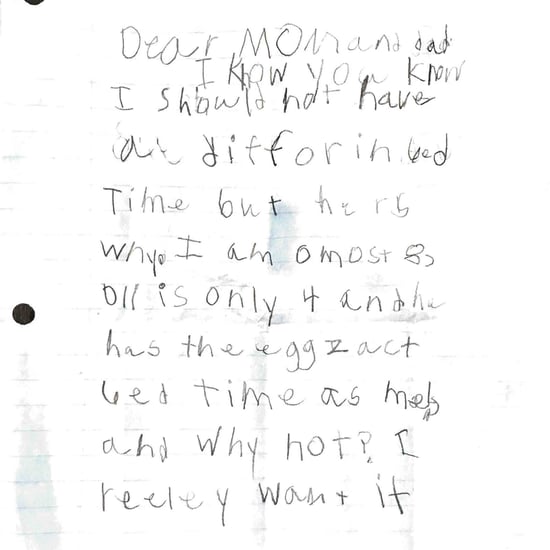 Dear MOM and dad
I know you know
I should not have
a difforin bed
Time but hers
why I am omost 8,
Oll is only 4 and he
has the eggzact
bed time as me,
and why not? I
reeley want it